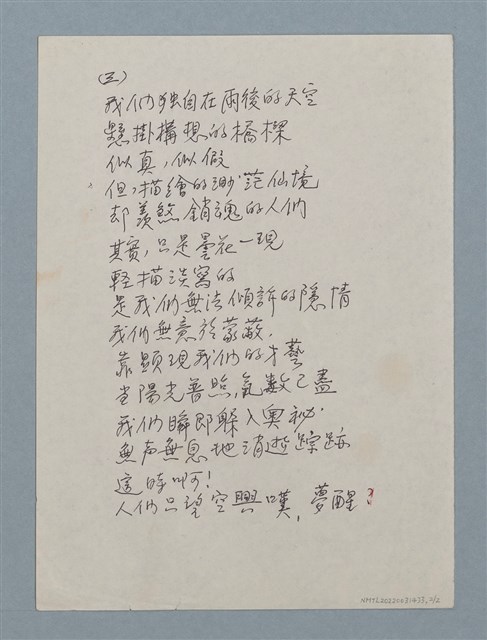 (三)
我们独自在雨後的天空
懸掛構想的橋樑
似真，似假
但，描繪的渺茫仙境
却羨煞銷魂的人们
其實，只是曇花一現
輕描淡寫的
是我们無法傾訴的隱情
我们無意於蒙蔽，
靠顕現我们的才藝
当陽光普照，氣数已盡
我们瞬即躲入奧祕．
無声無息地消逝踪跡
這時呵！
人们只望空興嘆，夢醒？
NMTL20220031433, 2/2